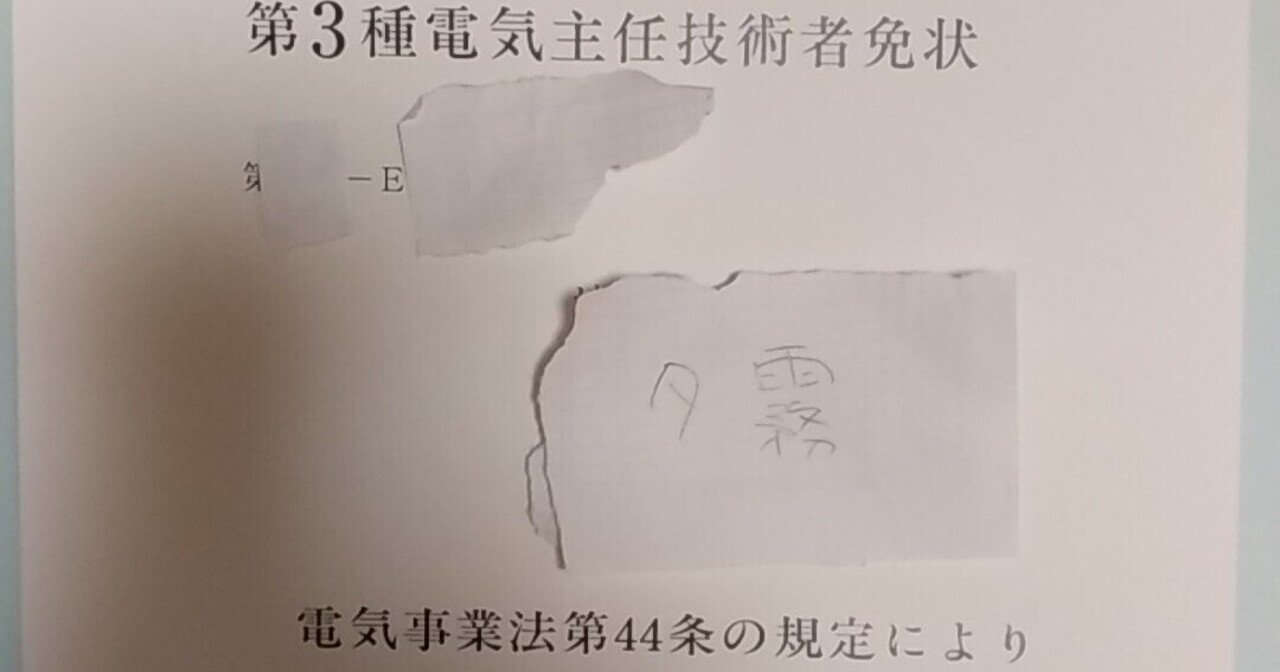 第3種電気主任技術者免状
第 －E
夕霧
電気事業法第44条の規定により